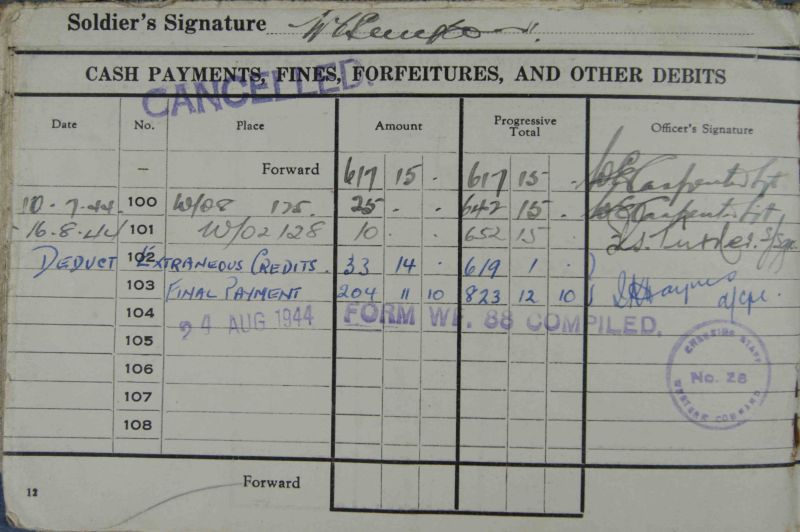 Soldier's Signature
CASH PAYMENTS, FINES, FORFEITURES, AND OTHER DEBITS
CANCELLED.
Date No. Place Amount Progressive Total Officer's Signature
– Forward 617 15 . 617 15 . Carpenter Lt
10.7.44 100 W/08 125. 25 . . 642 15 . Carpenter Lt
16.8.44 101 W/02 128 10 . . 652 15
DEDUCT 102 EXTRANEOUS CREDITS. 33 14 . 619 1 .
103 FINAL PAYMENT 204 11 10 823 12 10 Haynes a/cpl.
104 24 AUG 1944 FORM WF. 88 COMPILED.
105
106
107
108
No. 28
WESTERN COMMAND
Forward
12